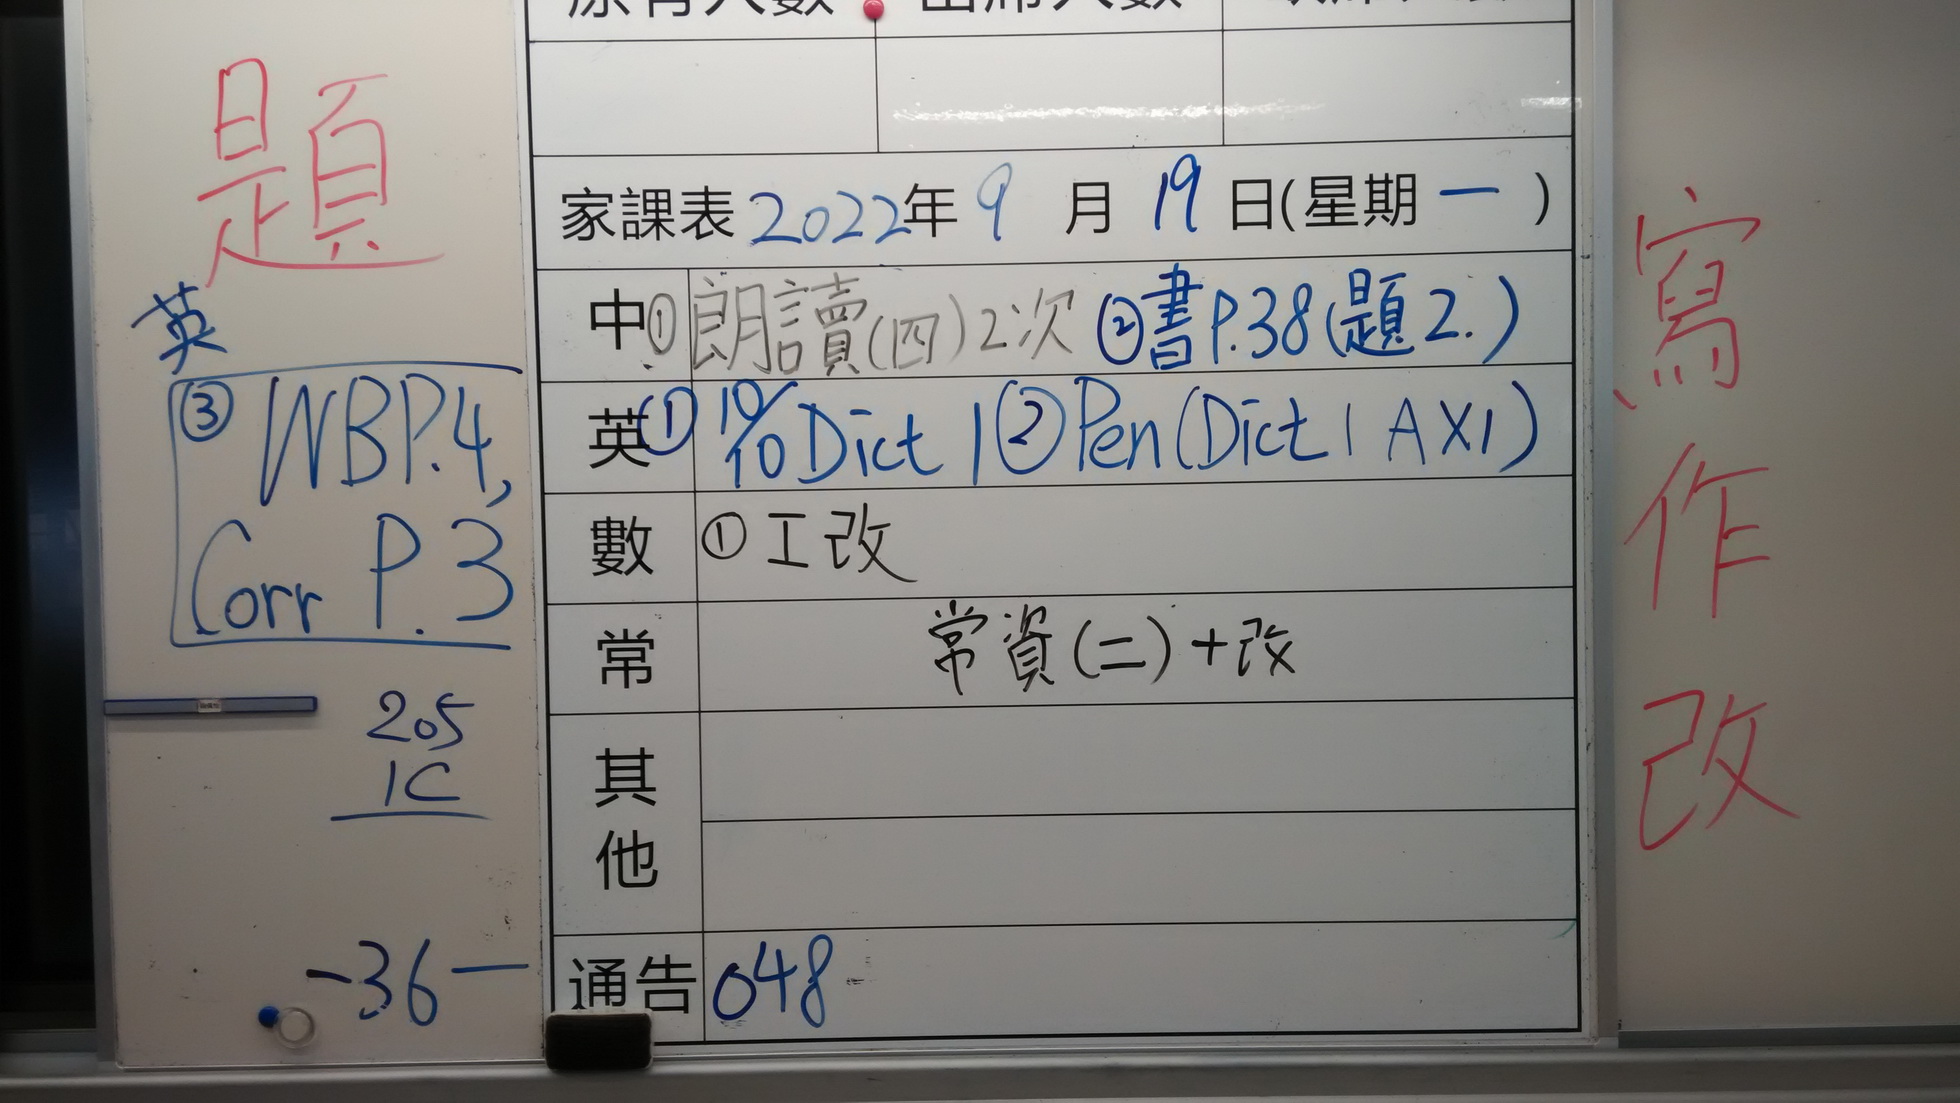 題
英
③ WB P.4,
Corr P.3
205
1C
-36-
原有人數 出席人數
家課表 2022年 9 月 19 日(星期 一 )
中 ① 朗讀(四)2次 ② 書P.38(題2.)
英 ① 19/10 Dict 1 ② Pen(Dict 1 AX1)
數 ① 工改
常 常資(二)+改
其他
通告 048
寫
作
改